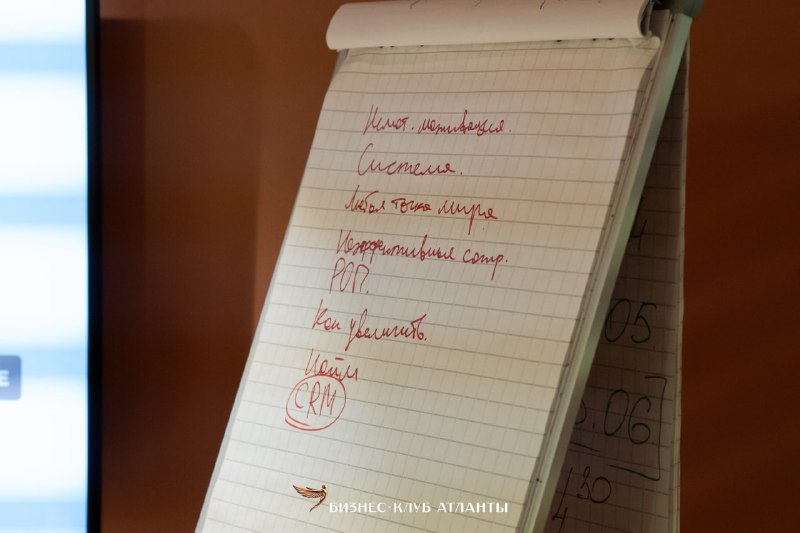 Немат. мотивация.
Система.
Любая точка мира
Неэффективные сотр.
РОП.
Как увеличить.
Найм
CRM
05
.06
30
4
E
БИЗНЕС·КЛУБ АТЛАНТЫ